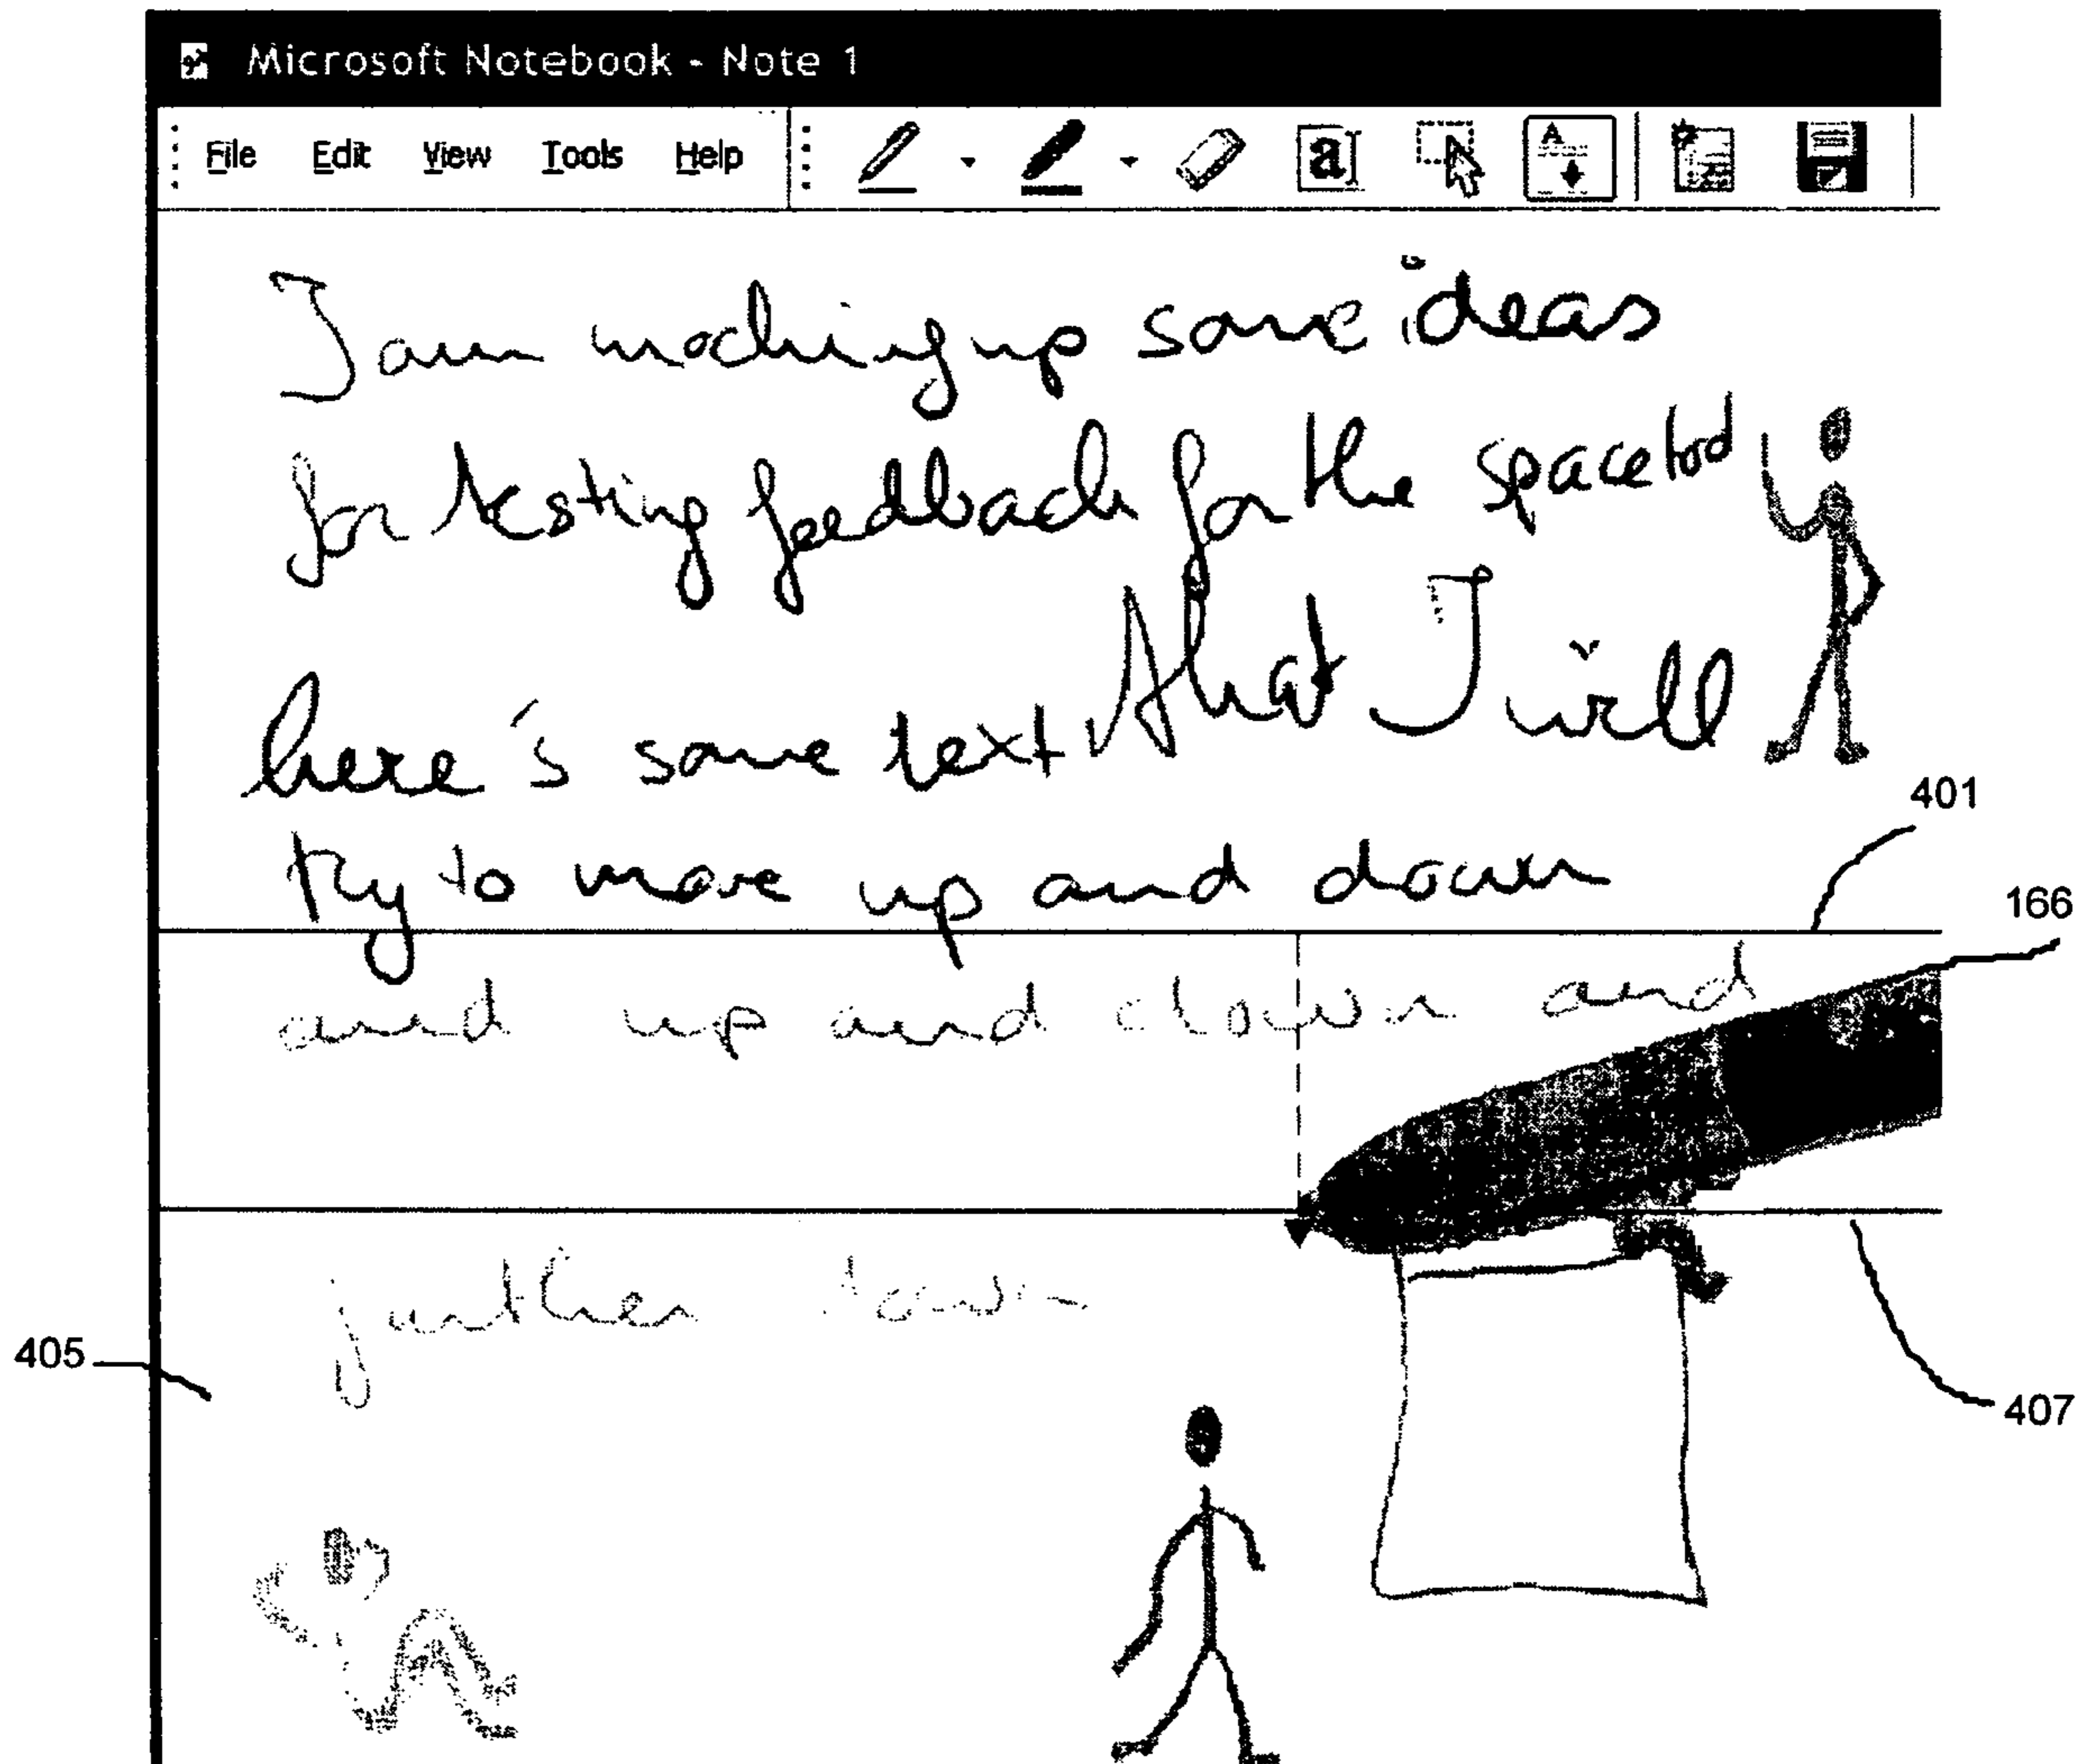 Microsoft Notebook - Note 1
File Edit View Tools Help a A
I am mocking up some ideas
for testing feedback for the space tool
here's some text that I will
401
try to move up and down
166
and up and down and
further down
405
407